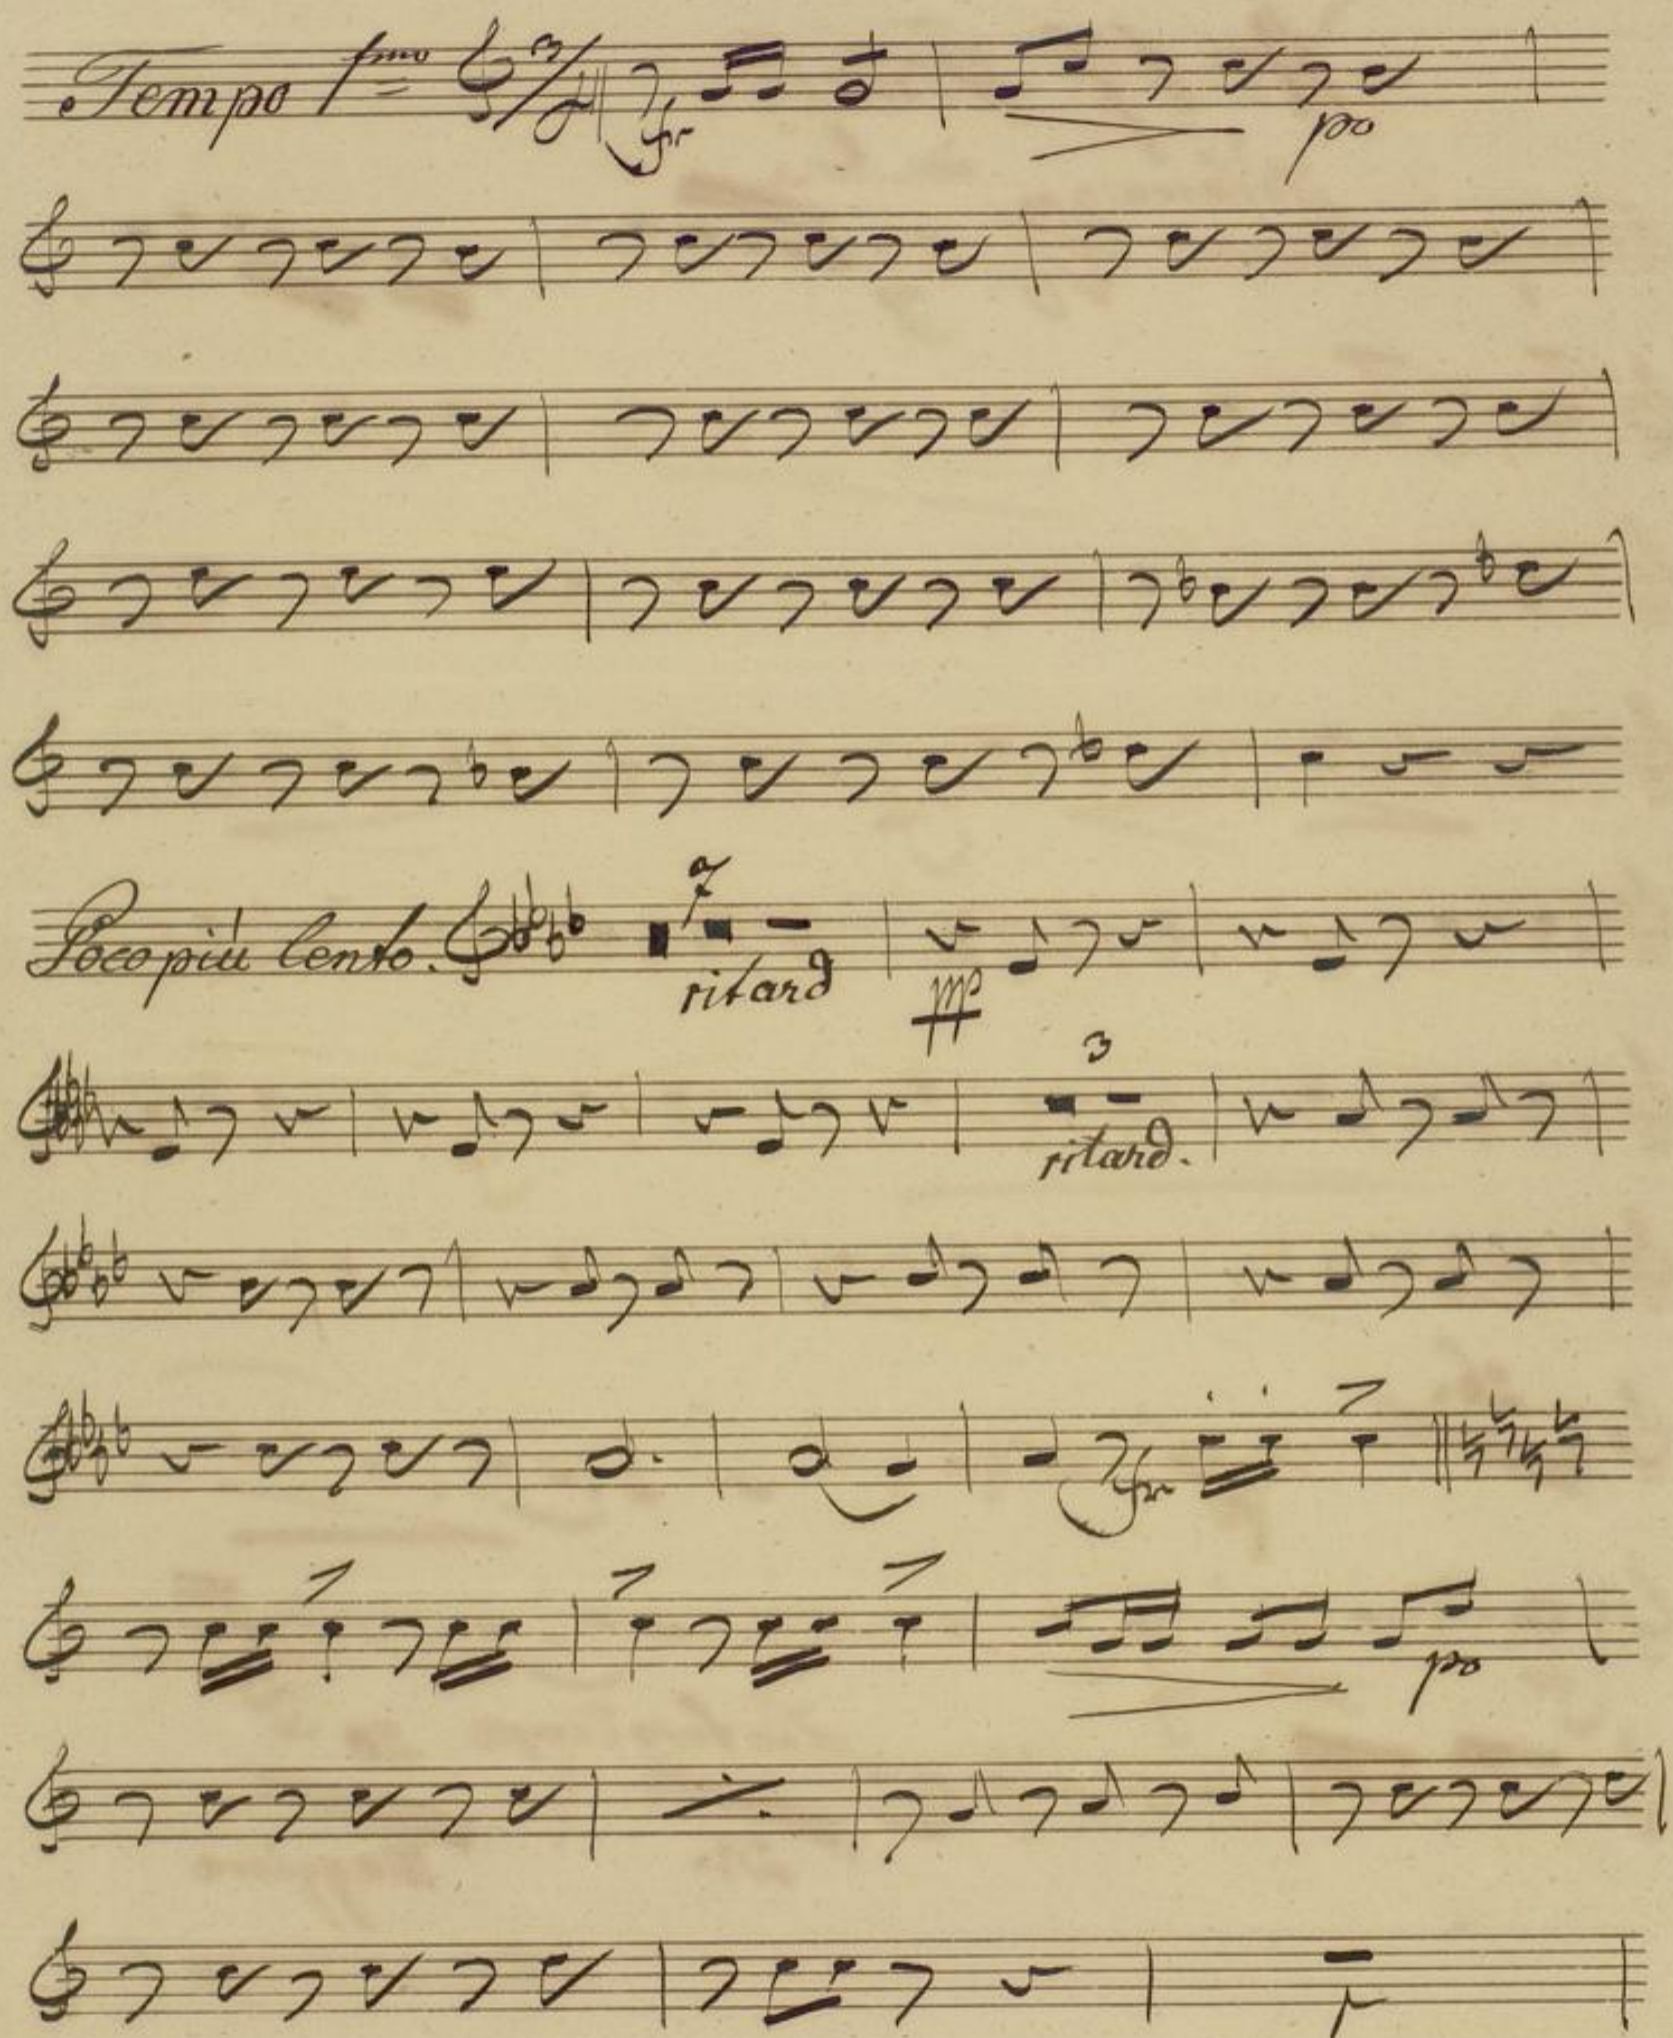 Tempo 1mo 3/4 fr po
Poco più lento. 7
ritard pp
3
ritard.
fr
po